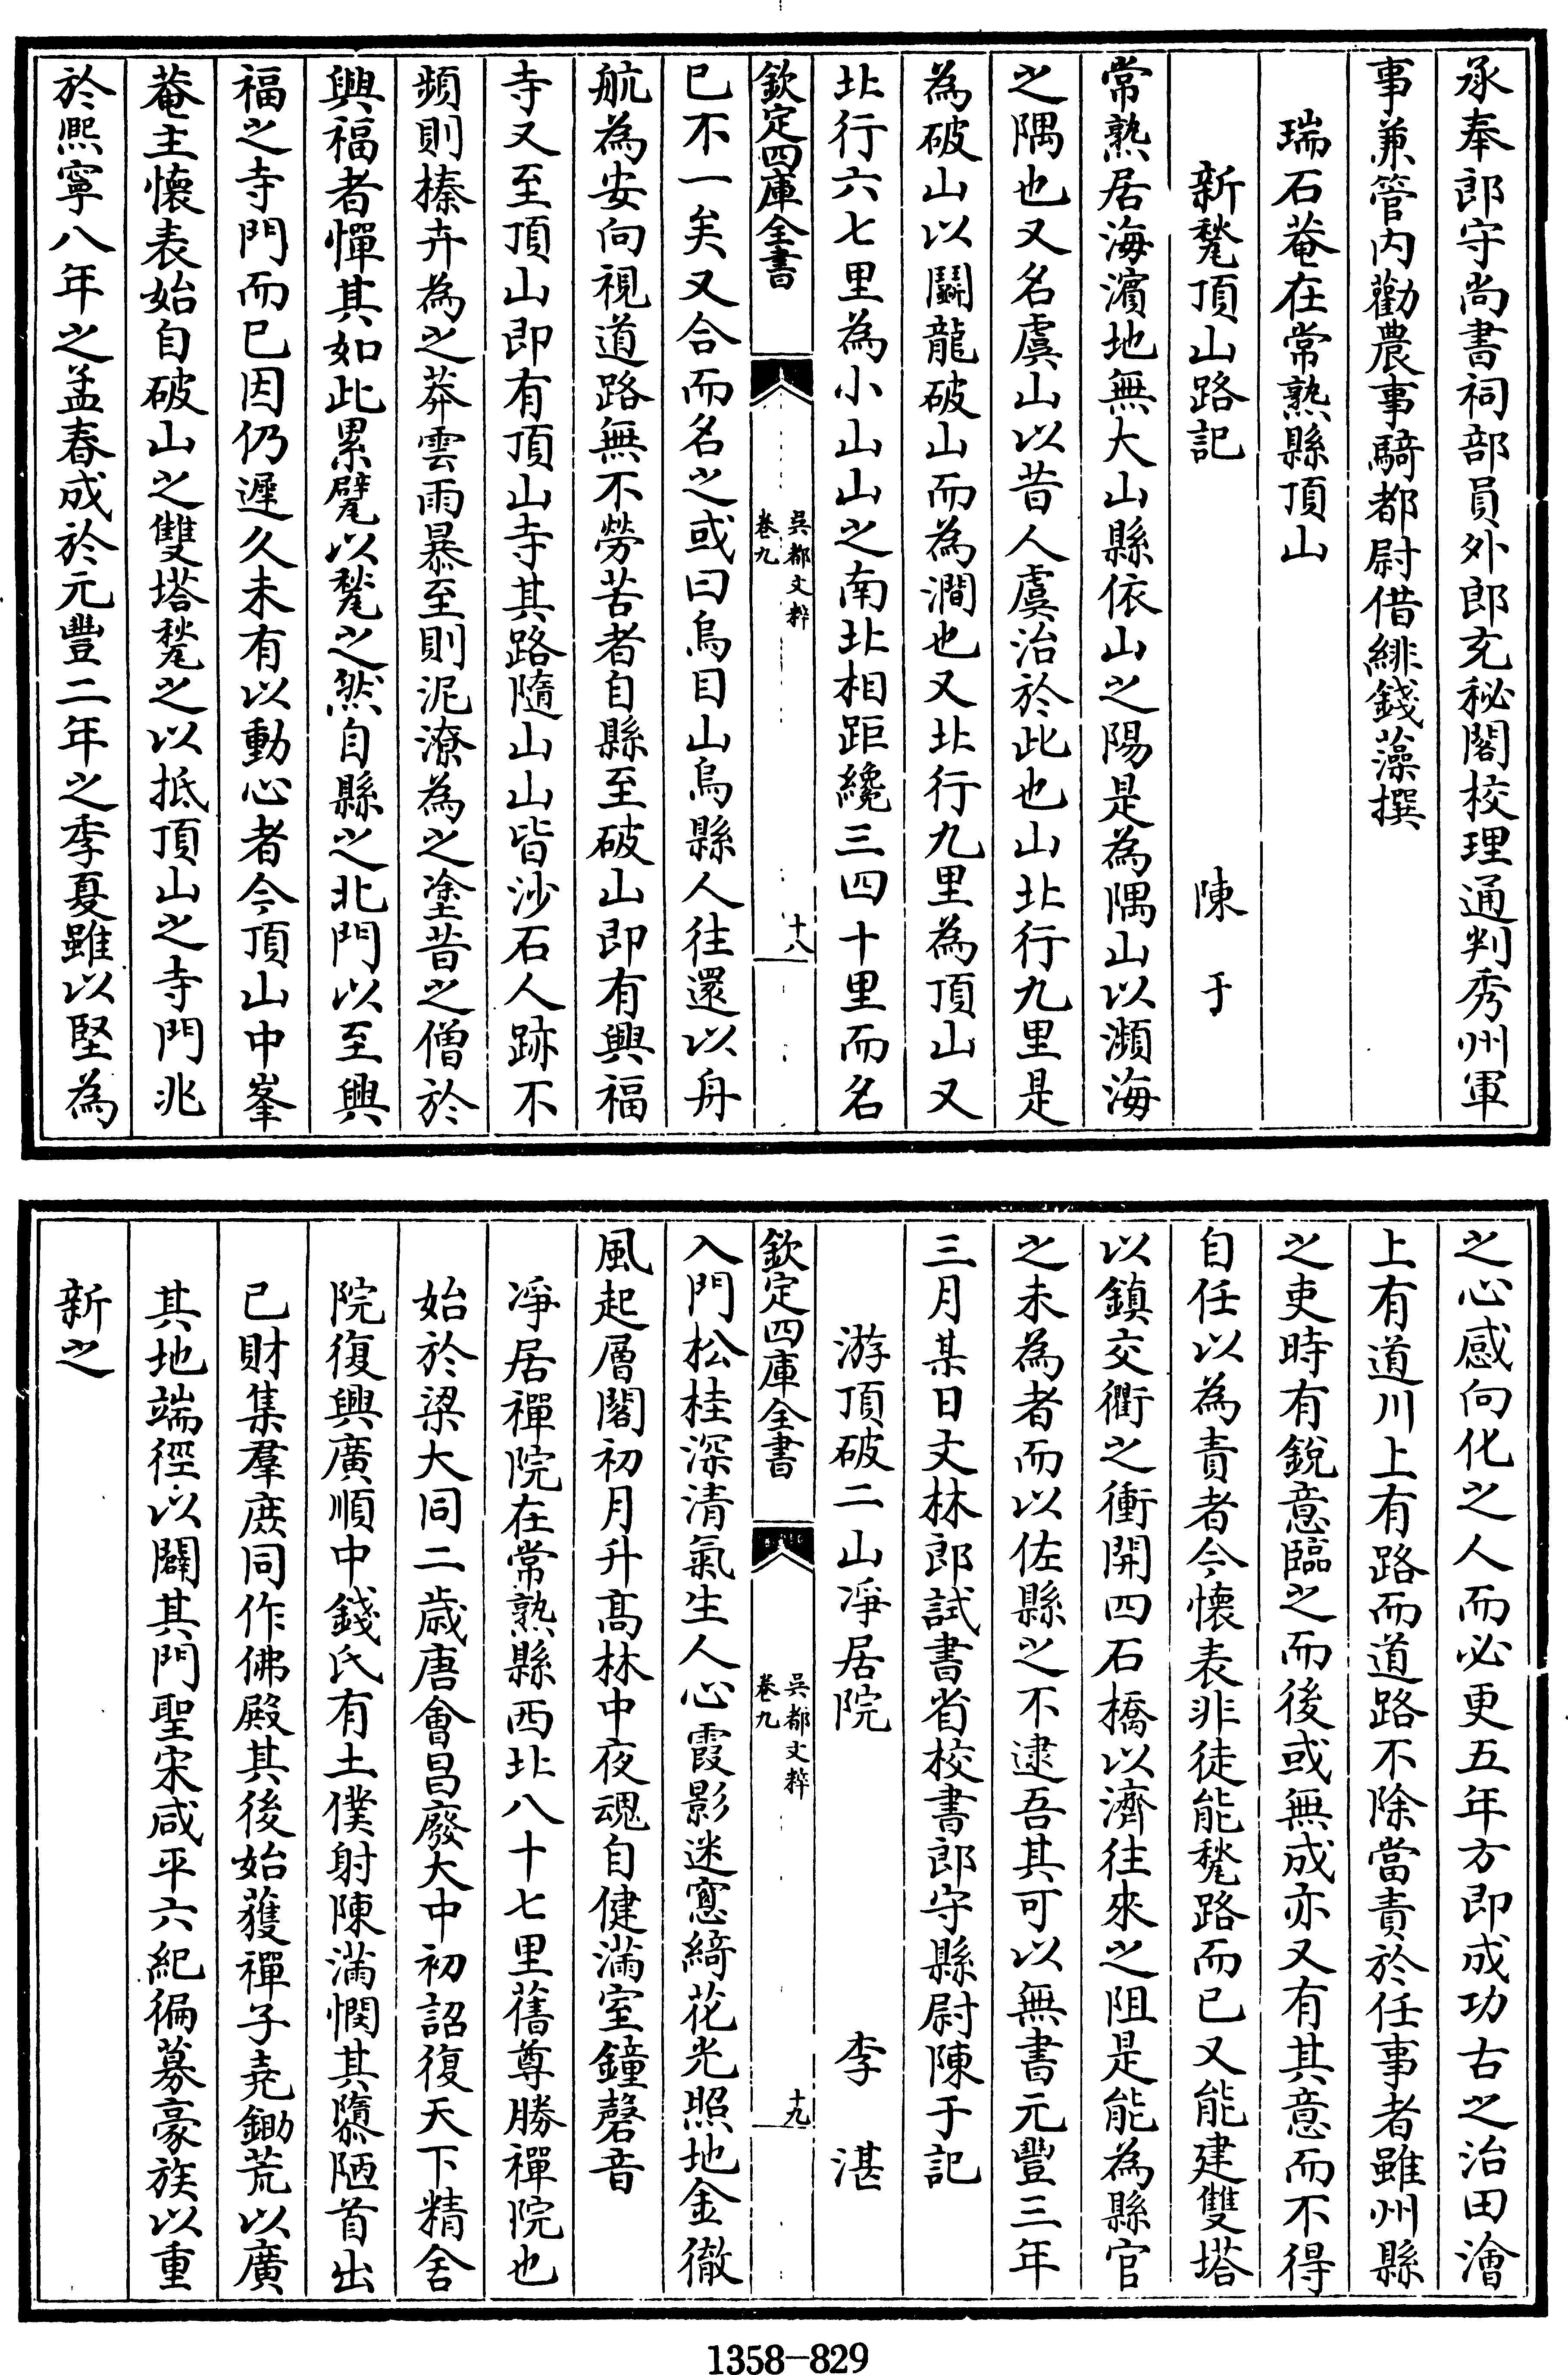 承奉郎守尚書祠部員外郎充秘閣校理通判秀州軍
事兼管内勸農事騎都尉借緋錢藻撰
瑞石菴在常熟縣頂山
新甃頂山路記 陳于
常熟居海濵地無大山縣依山之陽是為隅山以瀕海
之隅也又名虞山以昔人虞治於此也山北行九里是
為破山以鬭龍破山而為澗也又北行九里為頂山又
北行六七里為小山山之南北相距纔三四十里而名
欽定四庫全書
吳都文粹
卷九
十八
已不一矣又合而名之或曰烏目山烏縣人往還以舟
航為安向視道路無不勞苦者自縣至破山即有興福
寺又至頂山即有頂山寺其路隨山山皆沙石人跡不
頻則榛卉為之莽雲雨暴至則泥潦為之塗昔之僧於
興福者憚其如此累甓以甃之然自縣之北門以至興
福之寺門而已因仍遲久未有以動心者今頂山中峯
菴主懷表始自破山之雙塔甃之以抵頂山之寺門兆
於熙寧八年之孟春成於元豐二年之季夏雖以堅為
之心感向化之人而必更五年方即成功古之治田澮
上有道川上有路而道路不除當責於任事者雖州縣
之吏時有銳意臨之而後或無成亦又有其意而不得
自任以為責者今懷表非徒能甃路而已又能建雙塔
以鎮交衢之衝開四石橋以濟往來之阻是能為縣官
之未為者而以佐縣之不逮吾其可以無書元豐三年
三月某日文林郎試書省校書郎守縣尉陳于記
游頂破二山凈居院 李湛
欽定四庫全書
吳都文粹
卷九
十九
入門松桂深清氣生人心霞影迷窻綺花光照地金徹
風起層閣初月升高林中夜魂自健滿室鐘磬音
凈居禪院在常熟縣西北八十七里舊尊勝禪院也
始於梁大同二歲唐會昌廢大中初詔復天下精舍
院復興廣順中錢氏有土僕射陳滿憫其隳陋首出
已財集羣庶同作佛殿其後始獲禪子堯鋤荒以廣
其地端徑以闢其門聖宋咸平六紀徧募豪族以重
新之
1358-829